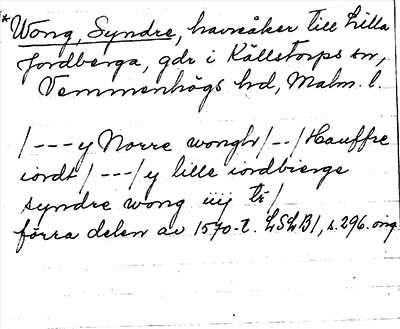 *Wong, Syndre, havreåker till Lilla
Jordberga, gdr i Källstorps sn,
Vemmenhögs hd, Malm. l.
/---y Norre wongh/--/Hauffre
iordt/---/y lille iordbierge
syndre wong iiij
förra delen av 1570-t. LSLB1, s.296. orig